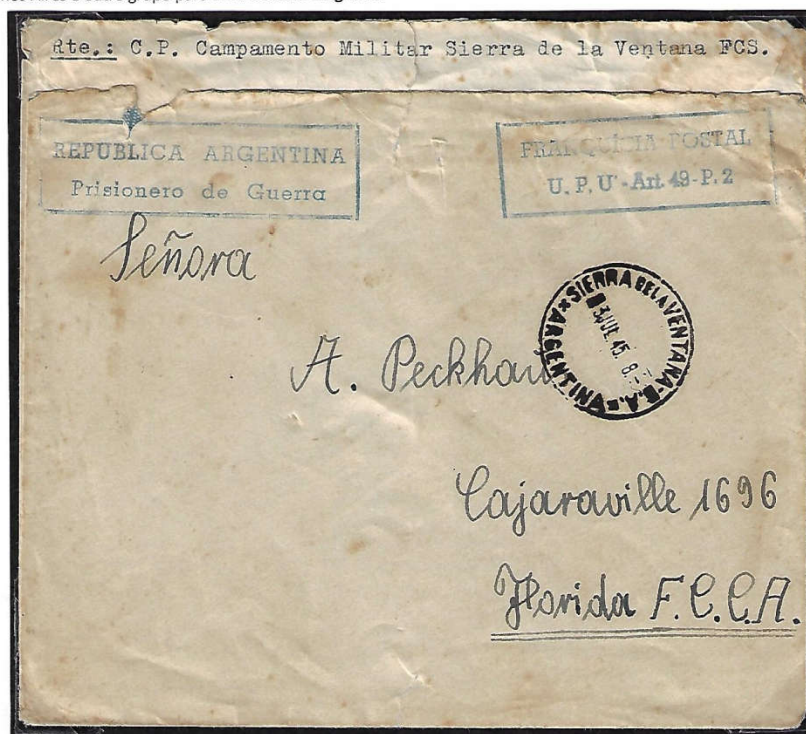 Rte.: C.P. Campamento Militar Sierra de la Ventana FCS.
REPUBLICA ARGENTINA
Prisionero de Guerra
FRANQUICIA POSTAL
U. P. U - Art. 49 - P. 2
Señora
SIERRA DE LA VENTANA - B.A.
ARGENTINA
3 JUL 45 8
A. Peckham
Cajaraville 1696
Florida F.C.C.A.